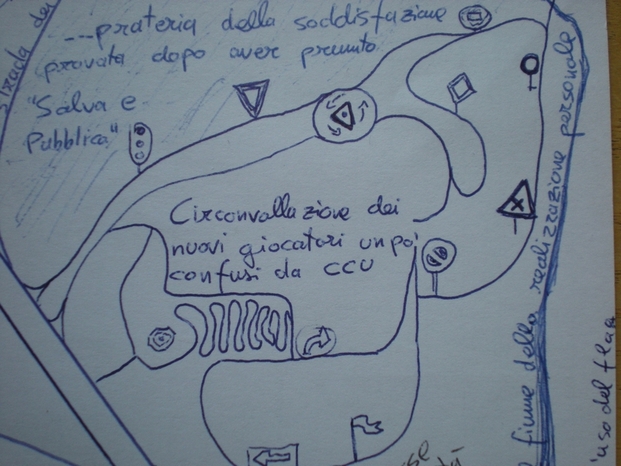 Strada dei
...prateria della soddisfazione
provata dopo aver premuto
"Salva e
Pubblica"
Circonvallazione dei
nuovi giocatori un po'
confusi da CCU
fiume della realizzazione personale
uso del